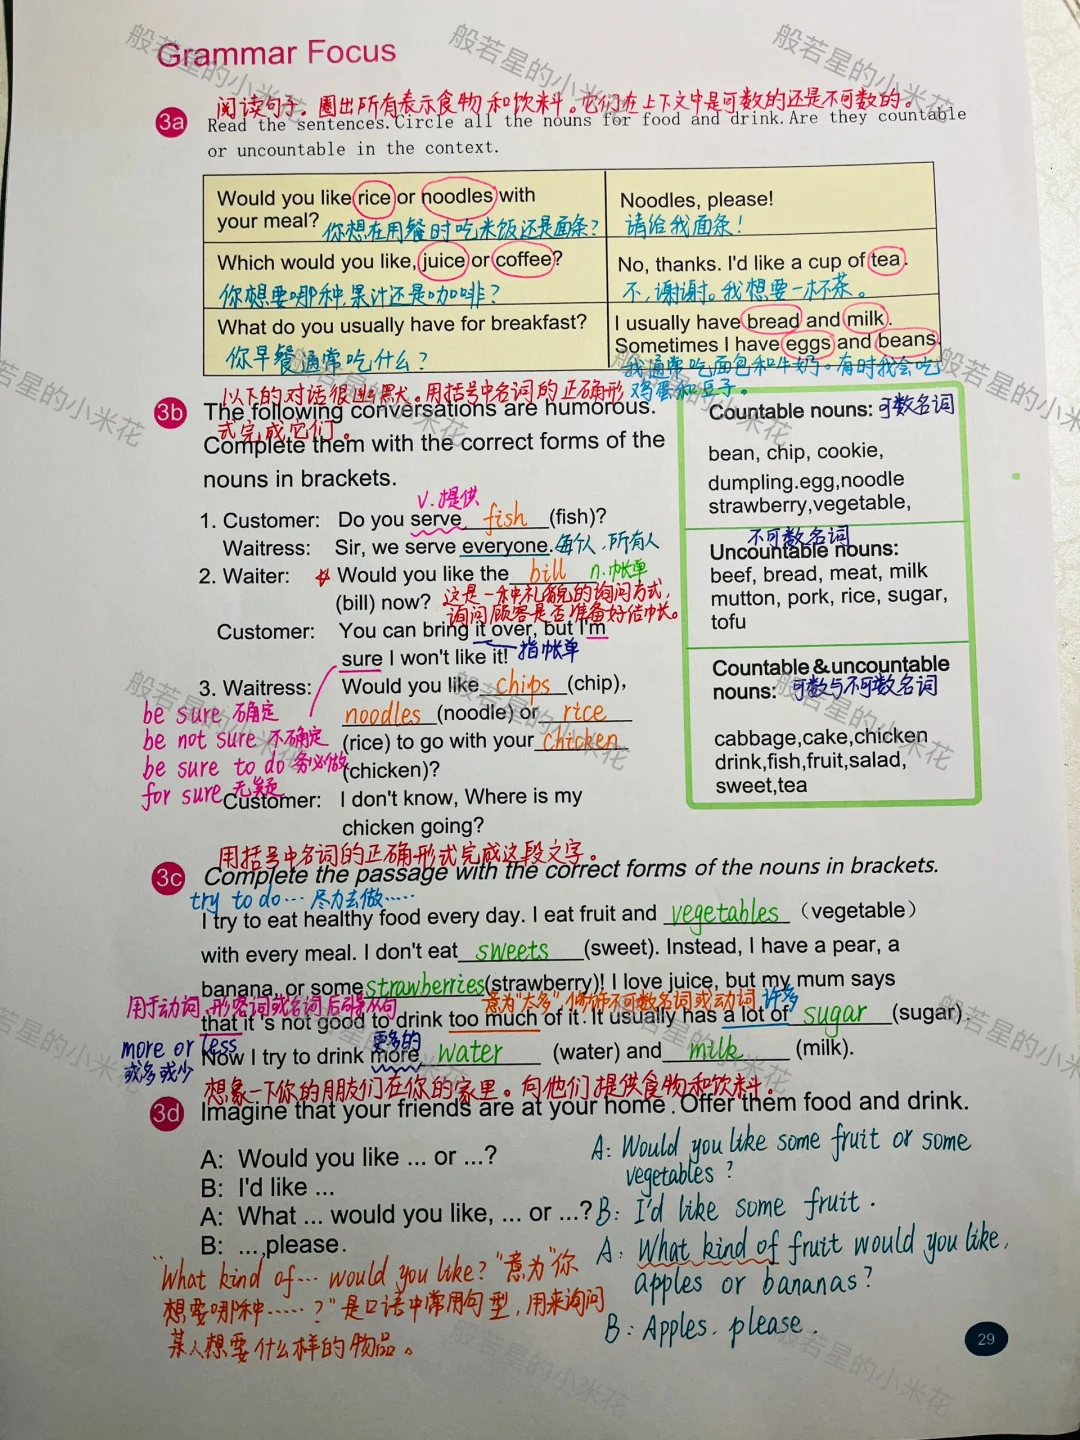 Grammar Focus
阅读句子。圈出所有表示食物和饮料。它们在上下文中是可数的还是不可数的。
3a Read the sentences.Circle all the nouns for food and drink.Are they countable
or uncountable in the context.
Would you like rice or noodles with
your meal? 你想在用餐时吃米饭还是面条?
Noodles, please!
请给我面条!
Which would you like, juice or coffee?
你想要哪种,果汁还是咖啡?
No, thanks. I'd like a cup of tea.
不,谢谢。我想要一杯茶。
What do you usually have for breakfast?
你早餐通常吃什么?
I usually have bread and milk.
Sometimes I have eggs and beans.
我通常吃面包和牛奶。有时我会吃
鸡蛋和豆子。
以下的对话很幽默。用括号中名词的正确形
式完成它们。
3b The following conversations are humorous.
Complete them with the correct forms of the
nouns in brackets.
v.提供
1. Customer: Do you serve fish (fish)?
Waitress: Sir, we serve everyone. 每个人,所有人
2. Waiter: Would you like the bill n.帐单
(bill) now? 这是一种礼貌的询问方式,
询问顾客是否准备好结帐。
Customer: You can bring it over, but I'm
sure I won't like it! 指帐单
3. Waitress: Would you like chips (chip),
noodles (noodle) or rice
(rice) to go with your chicken
(chicken)?
Customer: I don't know, Where is my
chicken going?
be sure 确定
be not sure 不确定
be sure to do 务必做
for sure 无疑
Countable nouns: 可数名词
bean, chip, cookie,
dumpling.egg,noodle
strawberry,vegetable,
不可数名词
Uncountable nouns:
beef, bread, meat, milk
mutton, pork, rice, sugar,
tofu
Countable &uncountable
nouns: 可数与不可数名词
cabbage,cake,chicken
drink,fish,fruit,salad,
sweet,tea
用括号中名词的正确形式完成这段文字。
3c Complete the passage with the correct forms of the nouns in brackets.
try to do… 尽力去做……
I try to eat healthy food every day. I eat fruit and vegetables (vegetable)
with every meal. I don't eat sweets (sweet). Instead, I have a pear, a
banana, or some strawberries (strawberry)! I love juice, but my mum says
用于动词、形容词或名词后引导从句
意为"太多"修饰不可数名词或动词 许多
that it's not good to drink too much of it. It usually has a lot of sugar (sugar).
more or less
或多或少
更多的
Now I try to drink more water (water) and milk (milk).
想象一下你的朋友们在你的家里。向他们提供食物和饮料。
3d Imagine that your friends are at your home. Offer them food and drink.
A: Would you like ... or ...?
B: I'd like ...
A: What ... would you like, ... or ...?
B: ...,please.
A: Would you like some fruit or some
vegetables?
B: I'd like some fruit.
A: What kind of fruit would you like,
apples or bananas?
B: Apples, please.
"What kind of… would you like?"意为"你
想要哪种……?"是口语中常用句型,用来询问
某人想要什么样的物品。
29
般若星的小米花